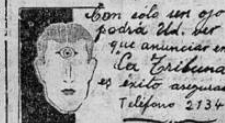 Con sólo un ojo
podrá Ud. ver
que anunciar en
"La Tribuna
es éxito asegurado
Teléfono 2134